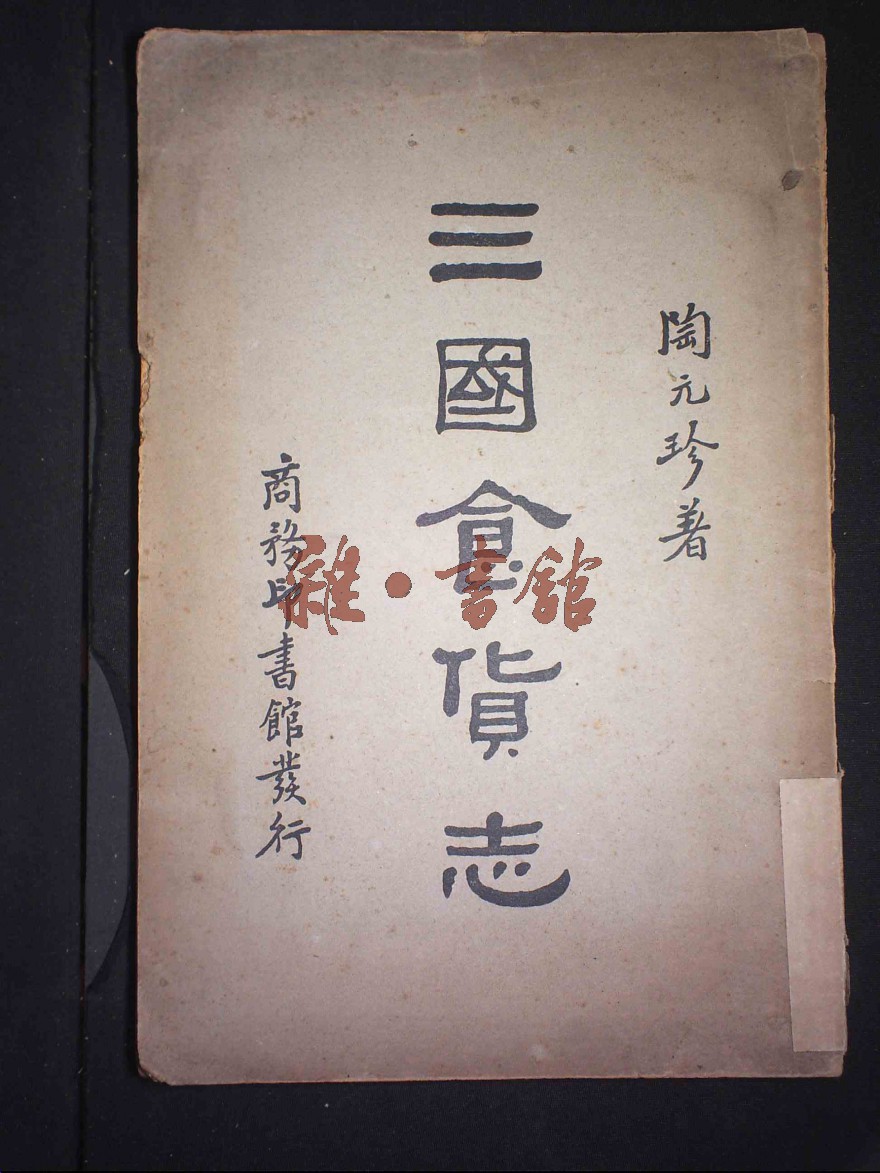 陶元珍著
三國食貨志
商務印書館發行
雜·書館